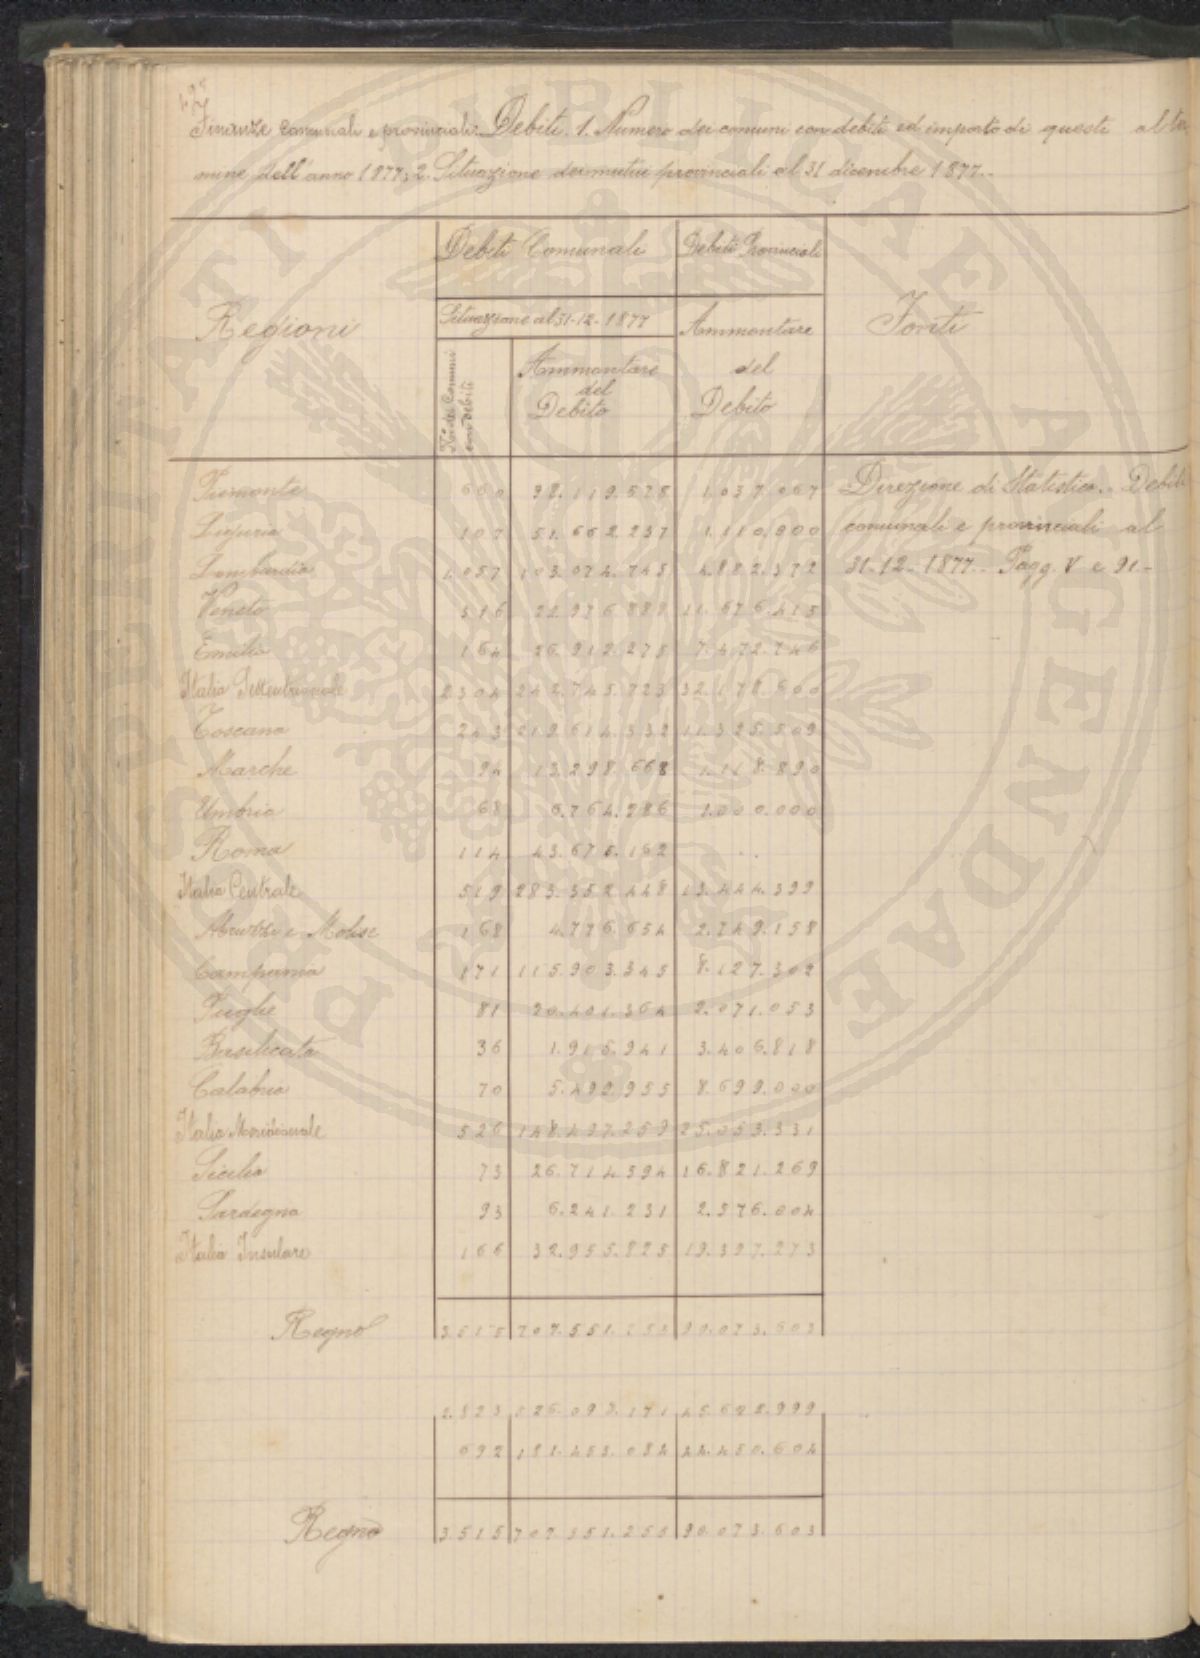 Finanze Comunali e provinciali: Debiti. 1. Numero dei comuni con debiti ed importo di questi al ter
mine dell'anno 1877; 2. Situazione dei mutui provinciali al 31 dicembre 1877.-
Regioni
Debiti Comunali
Debiti Provinciali
Fonti
Situazione al 31-12-1877
No dei Comuni
con debiti
Ammontare
del
Debito
Ammontare
del
Debito
Piemonte 660 38.119.578 7.037.067
Liguria 107 51.662.237 1.110.000
Lombardia 1.057 103.074.745 4.882.372
Veneto 316 22.976.888 11.676.415
Emilia 164 26.912.275 7.472.746
Italia Settentrionale 2304 242.745.723 32.178.600
Toscana 243 219.614.332 11.325.509
Marche 94 13.298.668 1.118.890
Umbria 68 6.764.286 1.000.000
Roma 114 43.675.162 . .
Italia Centrale 519 283.352.448 13.444.399
Abruzzi e Molise 168 4.776.654 2.749.158
Campania 171 115.903.345 8.127.302
Puglie 81 20.401.364 2.071.053
Basilicata 36 1.915.941 3.406.818
Calabria 70 5.499.955 8.699.000
Italia Meridionale 526 148.497.259 25.053.331
Sicilia 73 26.714.594 16.821.269
Sardegna 93 6.241.231 2.576.004
Italia Insulare 166 32.955.825 19.397.273
Regno 3515 707.551.255 90.073.603
2.823 526.098.171 45.622.999
692 181.453.084 44.450.604
Regno 3.515 707.551.255 90.073.603
Direzione di Statistica. Debiti
comunali e provinciali al
31-12-1877.- Pagg. V e 91.-
PUBLICAE AGENDAE